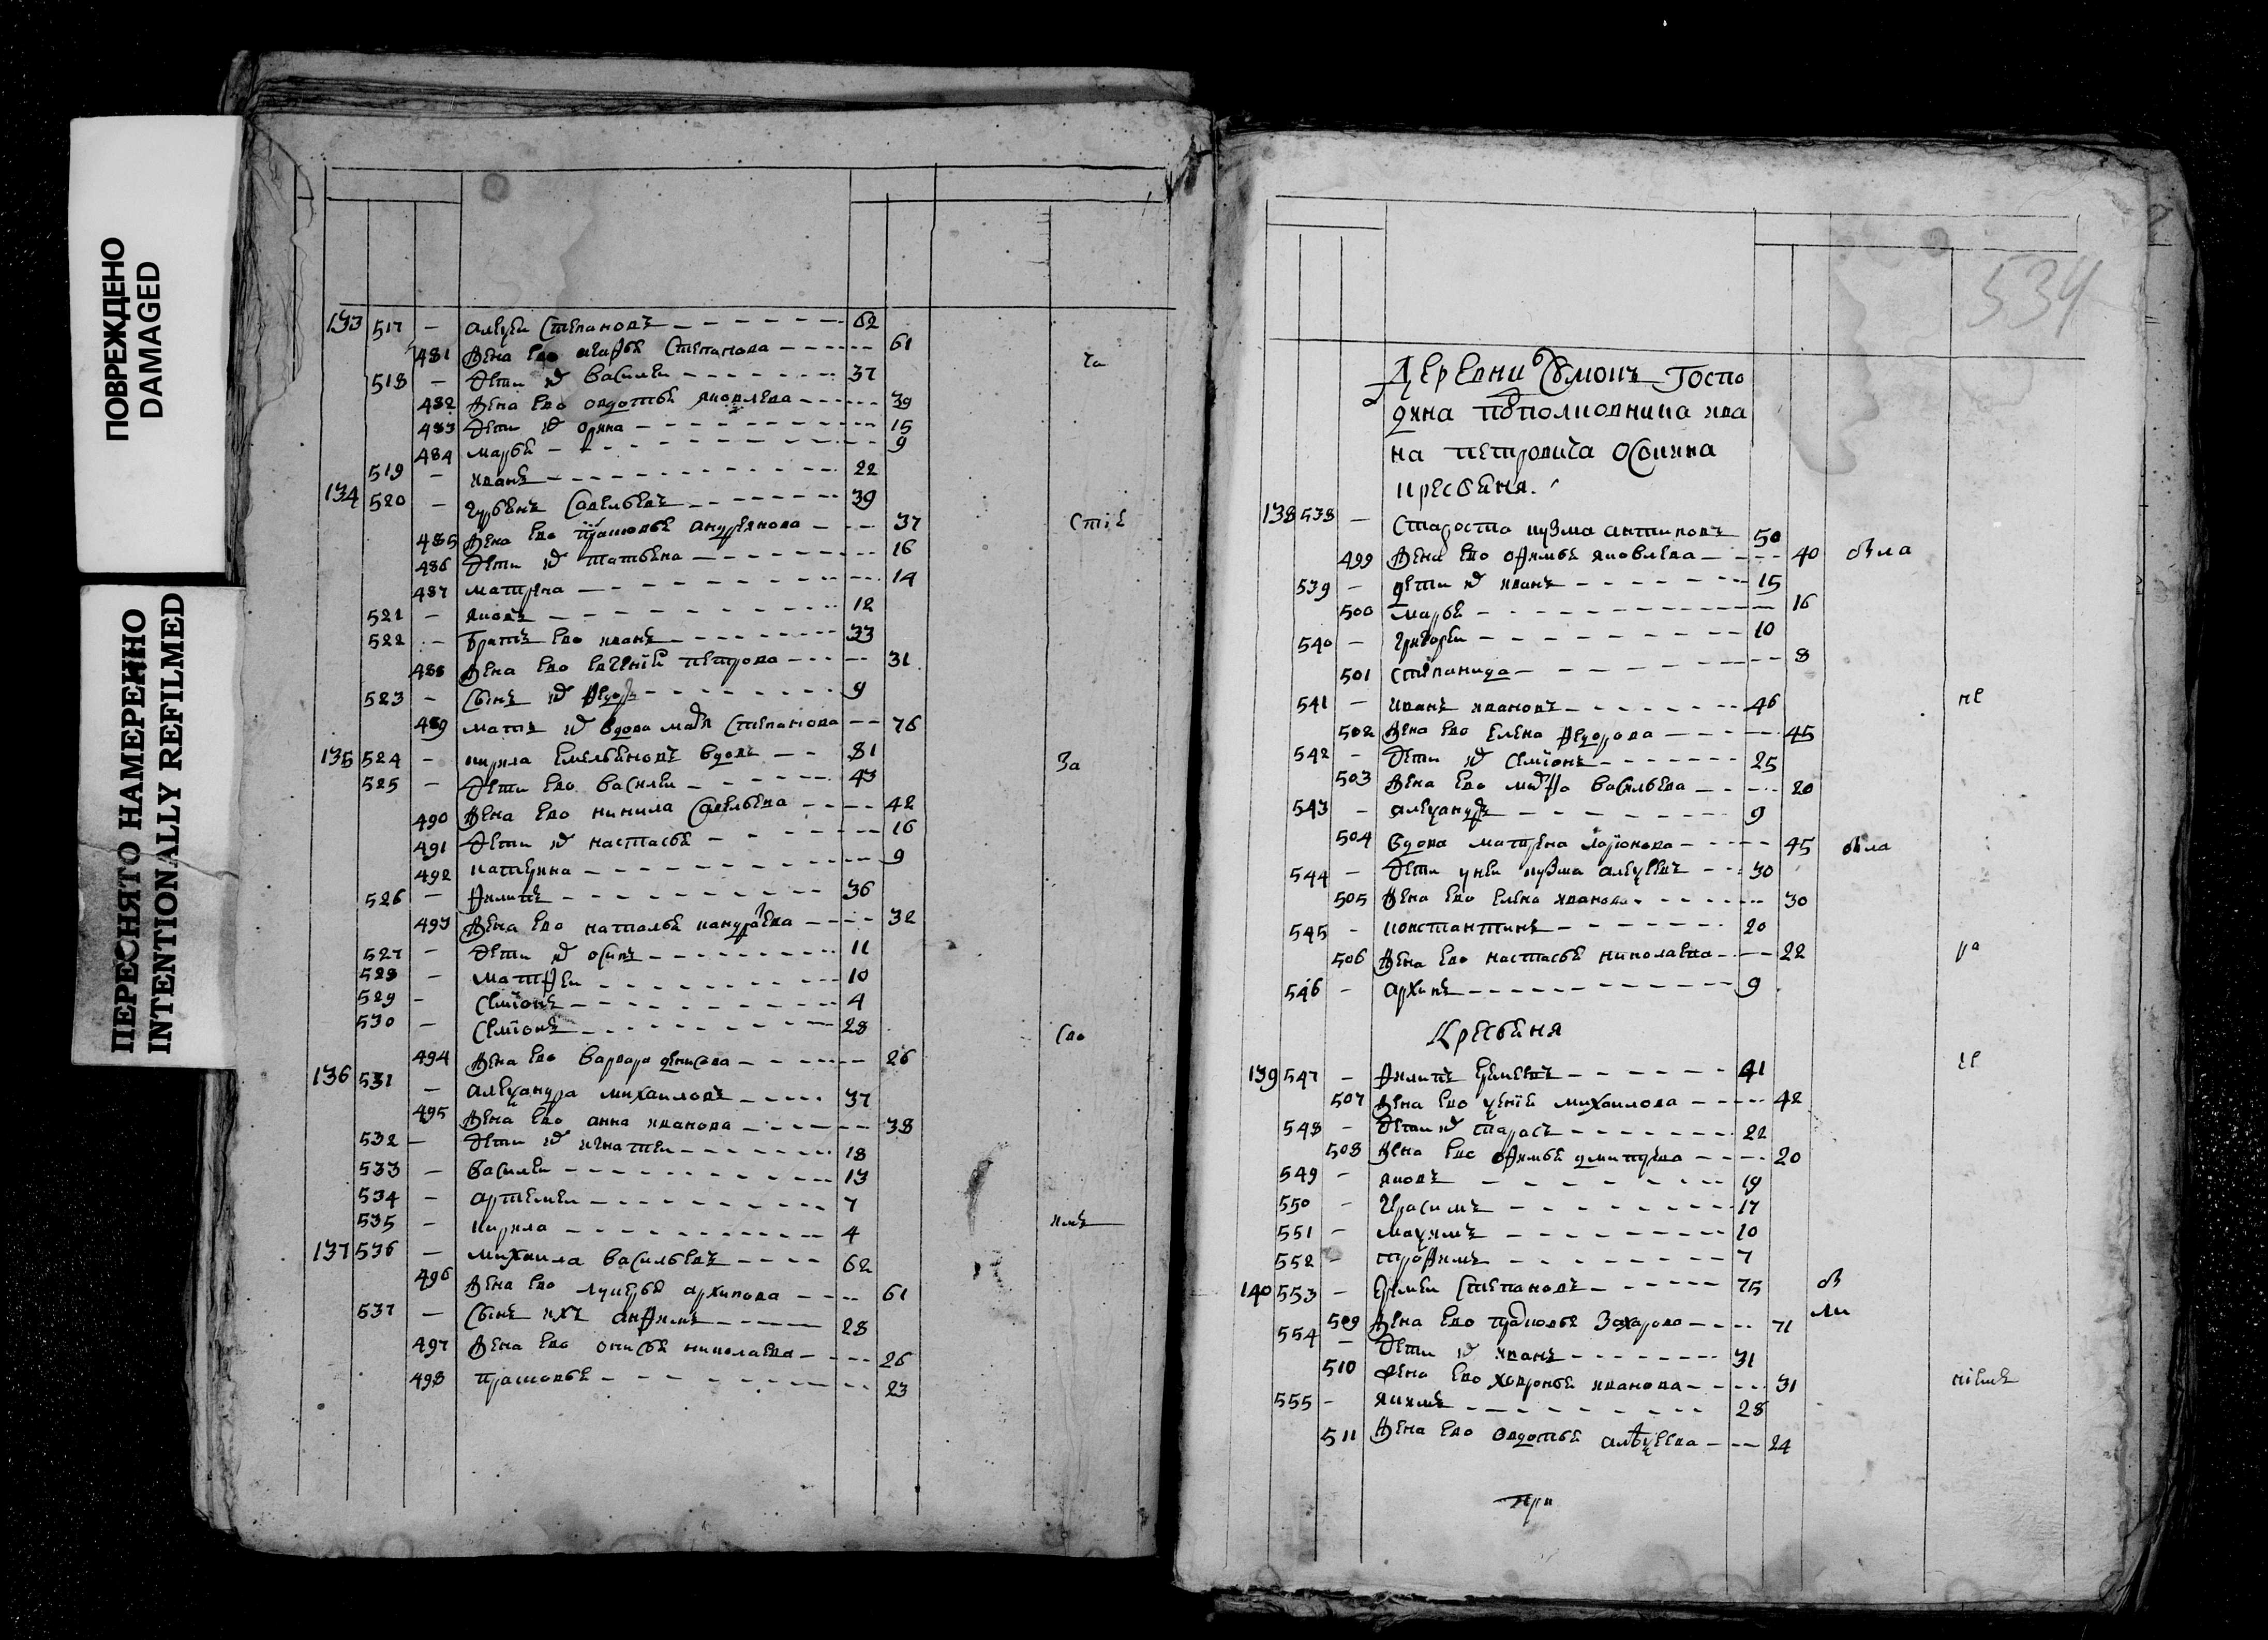 ПОВРЕЖДЕНО
DAMAGED
ПЕРЕСНЯТО НАМЕРЕННО
INTENTIONALLY REFILMED
133 517 – алеѯеи Степановъ 62
481 жена ево Степанова 61
518 – дети их василеи 37
482 жена ево овдотья яковлева 39
483 дети их орина 15
484 марья 9
519 – иванъ 22
134 520 – Савельевъ 39
485 жена ево прасковья андреянова 37
486 дети их татьяна 16
487 матрена 14
521 – яковъ 12
522 – братъ ево иванъ 33
488 жена ево евгения петрова 31
523 – сынъ их федоръ 9
489 мать их вдова Степанова 76
135 524 – кирила емельяновъ вдовъ 81
525 – дети ево василеи 43
490 жена ево нинила савельева 42
491 дети их настасья 16
492 катерина 9
526 – филипъ 36
493 жена ево наталья кандратева 32
527 – дети их осипъ 11
528 – матфеи 10
529 – семионъ 4
530 – семионъ 28
494 жена ево варвара денисова 26
136 531 – алеѯандра михаиловъ 37
495 жена ево анна иванова 38
532 – дети их игнатеи 18
533 – василеи 13
534 – артемеи 7
535 – кирила 4
137 536 – михаила васильевъ 62
496 жена ево лукерья архипова 61
537 – сынъ ихъ анфимъ 28
497 жена ево онисья николаева 26
498 прасковья 23
за
сво
534
Деревни Госпо
дина подполковника ива
на петровича
кресьяня
138 538 – Староста кузма антиповъ 50
499 жена ево офимья яковлева 40 была
539 – дети их иванъ 15
500 марья 16
540 – григореи 10
501 степанида 8
541 – иванъ ивановъ 46 не
502 жена ево елена федорова 45
542 – дети их семионъ 25
503 жена ево марфа васильева 20
543 – алеѯандръ 9
504 вдова матрена ларионова 45 была
544 – дети у неи кузма алеѯеевъ 30
505 жена ево елена иванова 30
545 – константинъ 20
506 жена ево настасья николаева 22
546 – архипъ 9
Кресьяня
139 547 – филипъ еремеевъ 41
507 жена ево ѯения михаилова 42
548 – дети их тарасъ 22
508 жена ево офимья дмитрева 20
549 – яковъ 19
550 – герасимъ 17
551 – маѯимъ 10
552 – трофимъ 7
140 553 – еремеи степановъ 75
509 жена ево прасковья захарова 71
554 – дети их иванъ 31
510 жена ево ховронья иванова 31
555 – якимъ 28
511 жена ево овдотья алеѯеева 24
при